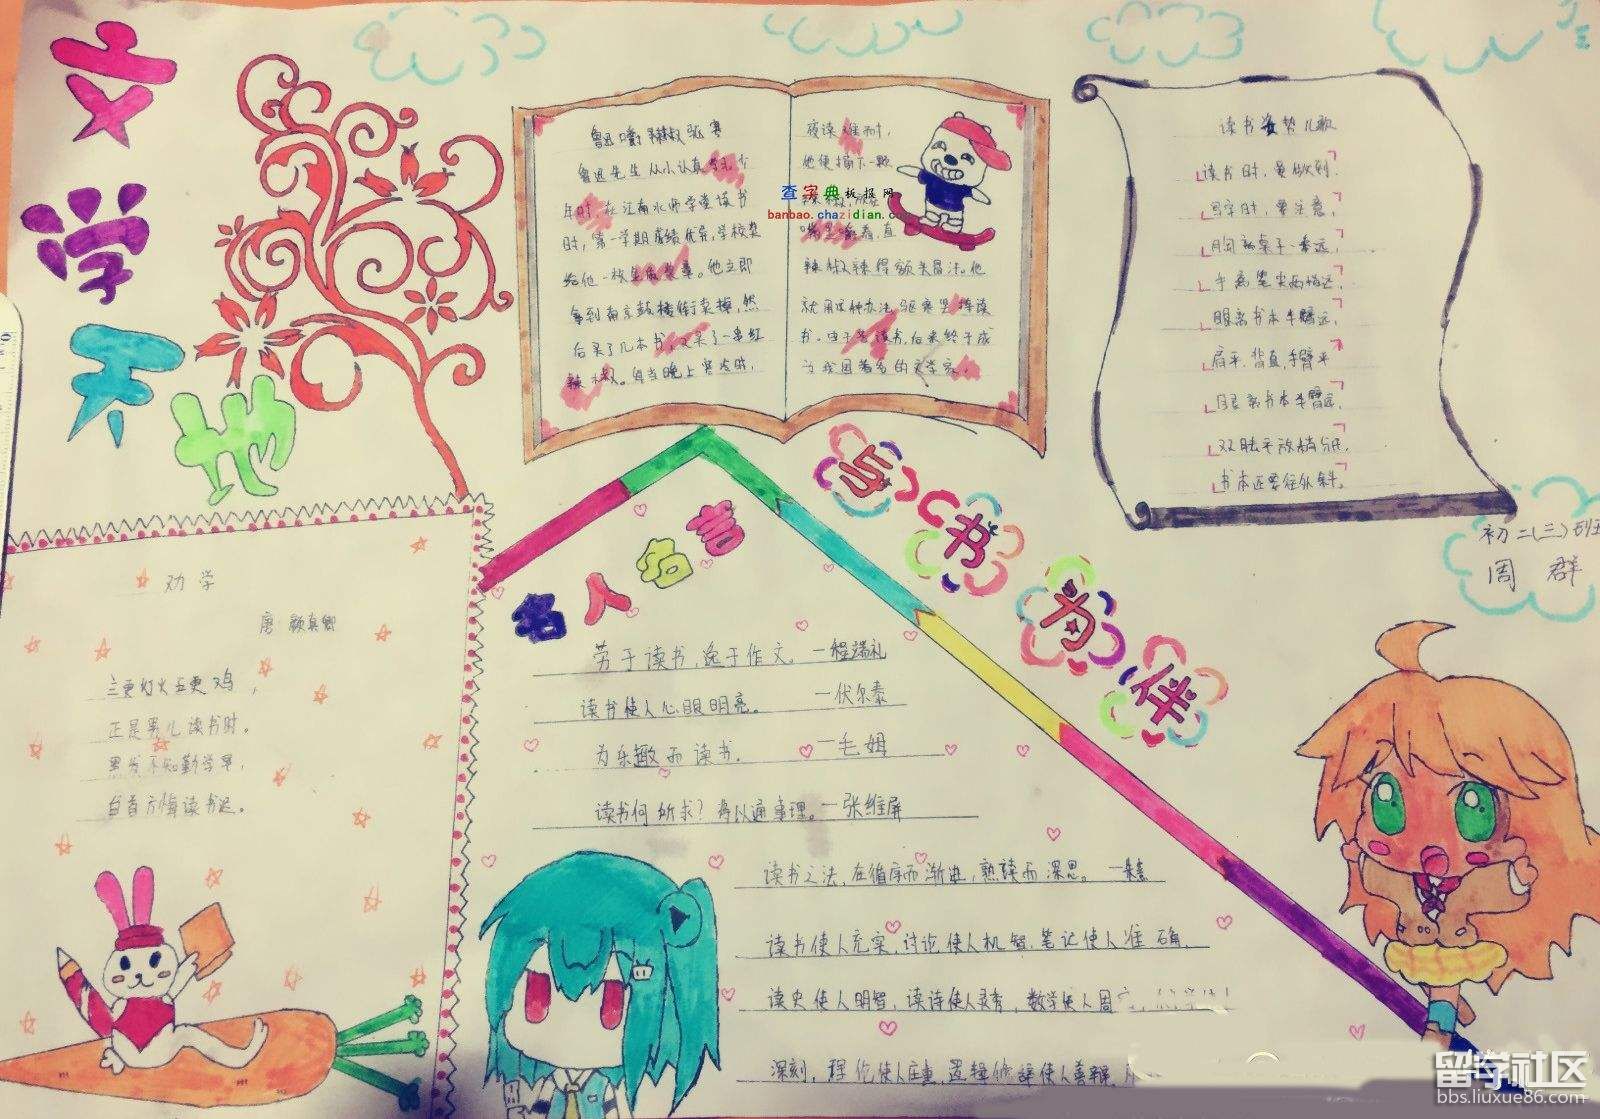 文学天地
鲁迅嚼辣椒驱寒
鲁迅先生从小认真学习。少
年时，在江南水师学堂读书
时，第一学期成绩优异，学校奖
给他一枚金质奖章。他立即
拿到南京鼓楼街头卖掉，然
后买了几本书，又买了一串红
辣椒。每当晚上寒冷时，
夜读难耐，
他便摘下一颗
嘴里嚼着，直
辣椒辣得额头冒汗。他
就用这种办法驱寒坚持读
书。由于苦读书，后来终于成
为我国著名的文学家。
查字典板报网
banbao.chazidian.com
读书姿势儿歌
读书时，要做到，
写字时，要注意，
胸离桌子一拳远，
手离笔尖一寸远，
眼离书本半臂远，
肩平，背直，手臂平
目光离书本半臂远，
书本还要往外斜。
初二(三)班
周群
与书为伴
劝学
唐 颜真卿
三更灯火五更鸡，
正是男儿读书时。
黑发不知勤学早，
白首方悔读书迟。
名人名言
劳于读书，逸于作文。—程端礼
读书使人心明眼亮。 —伏尔泰
为乐趣而读书. —毛姆
读书何所求？将以通事理。—张维屏
读书之法，在循序而渐进，熟读而深思。—朱熹
读书使人充实，讨论使人机智，笔记使人准确，
读史使人明智，读诗使人灵秀，数学使人周
深刻，理伦使人庄重，逻辑修辞使人善辩，
留学社区
bbs.liuxue86.com